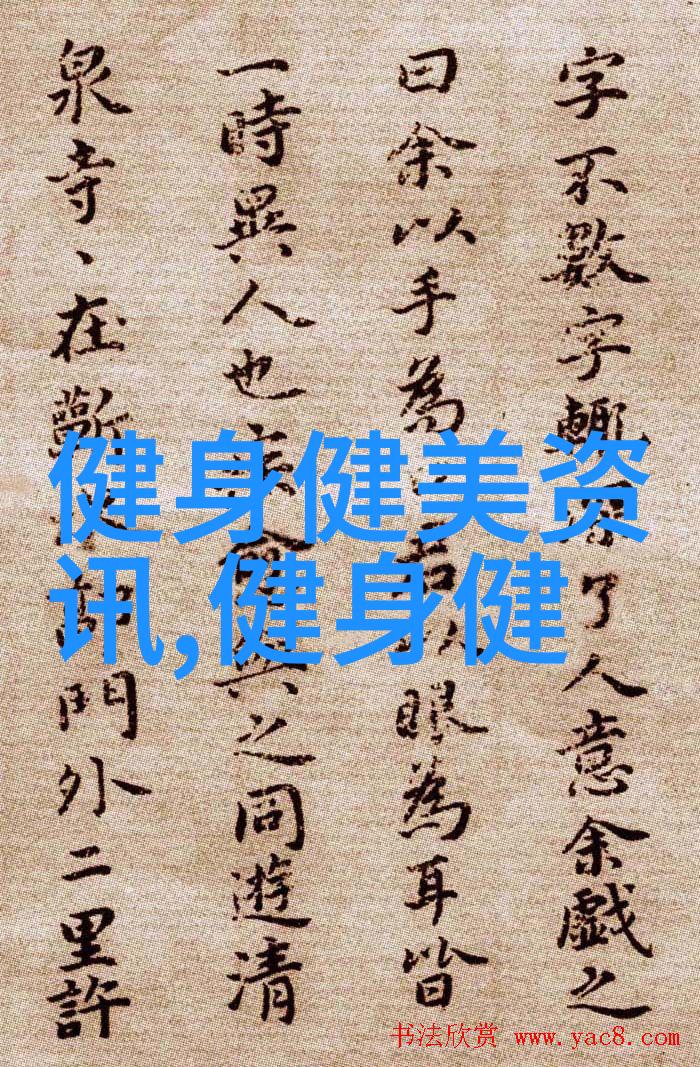 字不數字輒了人意余戲之
曰余以手為眼為耳皆
一時異人也之同遊清
泉寺、在門外二里許
健身健美资
讯,健身健
书法欣赏 www.yac8.com